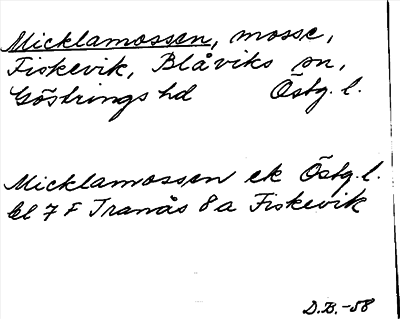 Micklamossen, mosse,
Fiskevik, Blåviks sn,
Göstrings hd Östg. l.
Micklamossen ek Östg. l.
bl 7 F Tranås 8 a Fiskevik
D.B.-58